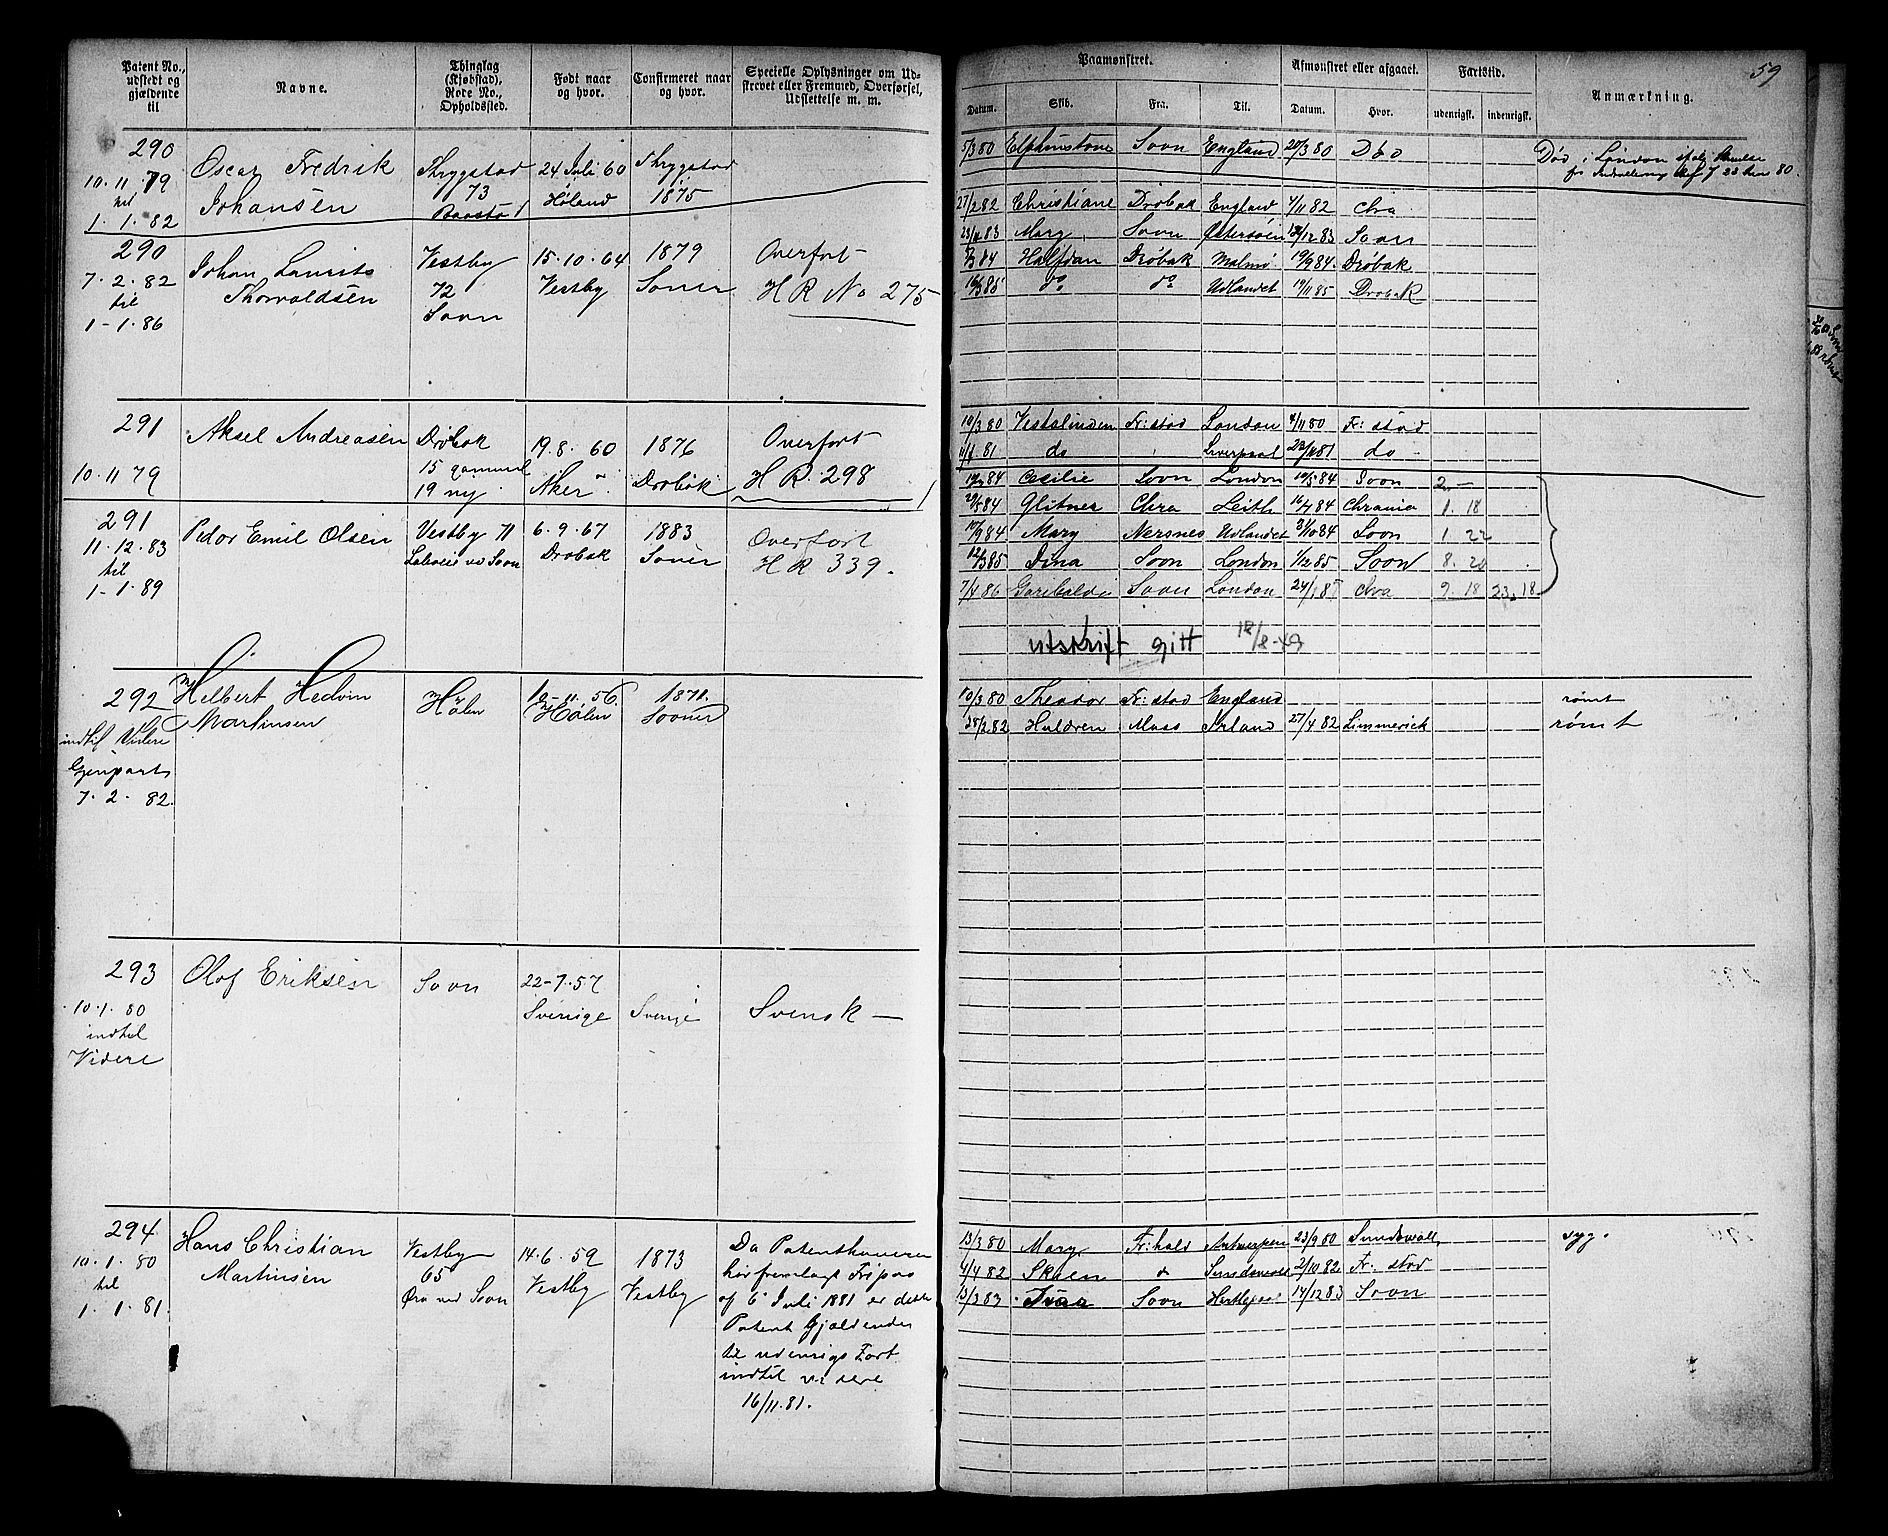 Patent No., udstedt og gjældende til
Navne.
Thinglag (Kjøbstad), Rode No., Opholdssted.
Født naar og hvor.
Confirmeret naar og hvor.
Specielle Oplysninger om Udskrevet eller Fremmed, Overførsel, Udslettelse m. m.
290
10. 11 79
til
1. 1. 82
Oscar Fredrik
Johansen
73
24 Juli 60
Høland
1875
290
7. 2. 82
til
1-1. 86
Johan Laurits
Thorvaldsen
Vestby
72
Soon
15. 10. 64
Vestby
1879
Soner
Overført
H R No 275
291
10. 11 79
Aksel Andreasen
Drøbak
15 gammel
19 ny
19. 8. 60
Aker
1876
Drøbak
Overført
H R. 298
291
11. 12. 83
til
1-1. 89
Peder Emil Olsen
Vestby 71
6. 9. 67
Drøbak
1883
Soner
Overført
H R 339.
292
indtil Videre
Genpart
7. 2. 82.
Helbert Hedvin
Martinsen
Hølen
19-11. 56
Hølen
1871.
Sooner
293
10. 1. 80
indtil
Videre
Olof Eriksen
Soon
22-7. 57
Sverige
Sverige
Svensk —
294
10. 1. 80
til
1. 1. 81.
Hans Christian
Martinsen
Vestby
65
Øra ved Soon
14. 6. 59
Vestby
1873
Vestby
Da Patenthaveren
har fremlagt Fripas
af 6 Juli 1881 er dette
Patent Gjældende
til udenrigs Fart
indtil videre
16/11. 81.
59
Paamønstret.
Afmønstret eller afgaaet.
Fartstid.
Anmærkning.
Datum. Skib. Fra. Til. Datum. Hvor. udenrigsk. indenrigsk.
5/3 80 Elphinstone Soon England 20/3 80 Død
Død i London
27/2 82 Christiane Drøbak England 7/11 82 Chra
Mary Soon Østersøen 83 Soon
84 Halfdan Drøbak Malmø 84. Drøbak
85 do do Udlandet 19/11 85 Drøbak
19/3 80 Vestalinden Fr: stad London 4/11 80 Fr: stad
81 do Liverpool 81 do
84 Cecilie Soon London 19/5 84 Soon 2. —
29/5 84 Glitner Chra Leith 16/7 84 Chrania 1. 18
10/9 84 Mary Nersnes Udlandet 31/10 84 Soon 1. 22
12/3 85 Dina Soon London 1/12 85 Soon 8. 20
7/4 86 Garibaldi Soon London 24/1 87 Chra 9. 18 23. 18
utskrift gitt 18/8-49
19/3 80 Theodor Fr: stad England rømt
28/2 82 Huldren Moss Irland 27/4 82 Limmerick rømt
13/3 80 Mary Fr: hald Antwerpen 23/9 80 Sundsvall syg.
4/4 82 Skien Sundsvall 2/10 82 Fr. stad
13/3 83 Soon Hartlepool 14/12 83 Soon